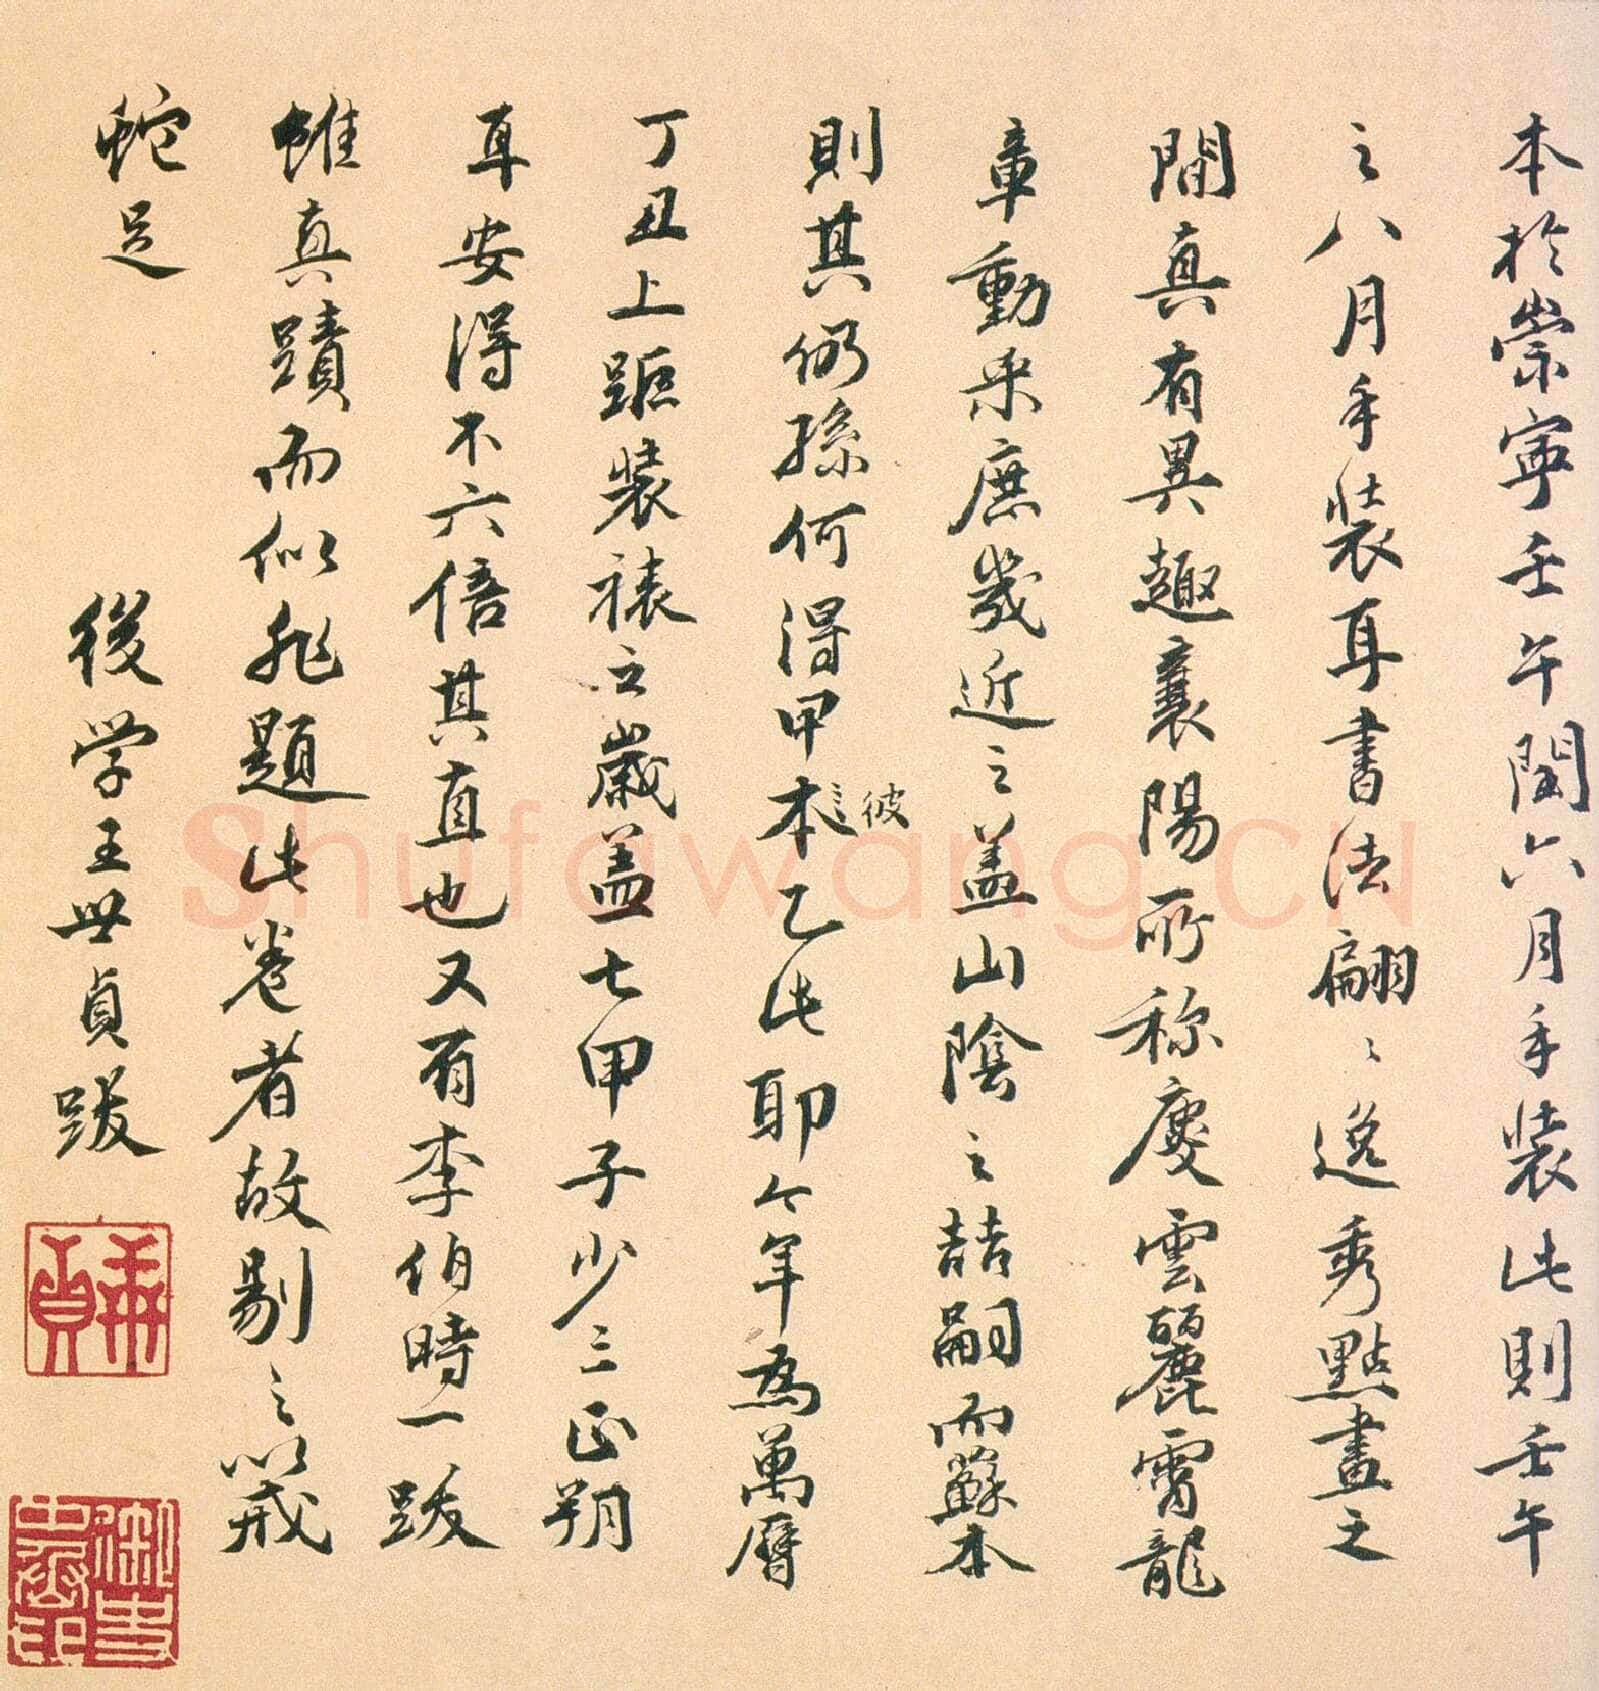 本於崇寧壬午閏六月手裝此則壬午
之八月手裝耳書法翩〻逸秀點畫之
間真有異趣襄陽所称慶雲麗霄龍
章動采庶幾近之盖山陰之喆嗣而蘇本
則其仍孫何得甲本乙此耶今年為萬曆
彼
丁丑上距裝裱之歲盖七甲子少三正朔
耳安得不六倍其直也又有李伯時一跋
雖真蹟而似非題此卷者故剔之以戒
蛇足
後学王世貞跋
世貞
Shufawang.CN